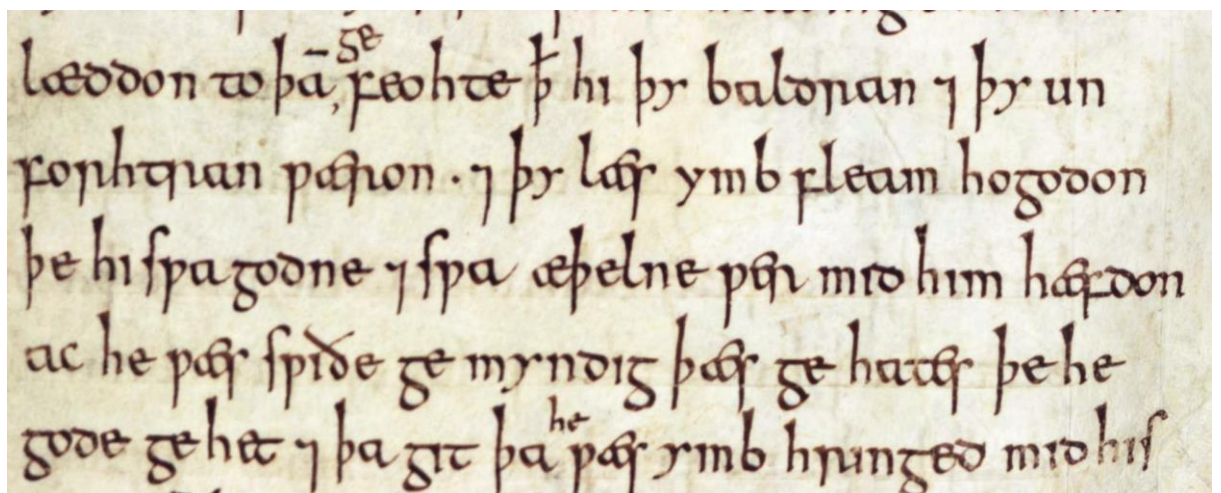 læddon to þā gefeohte ꝥ hi þy baldran ⁊ þy un
forhtran ƿæron · ⁊ þy læs ymb fleam hogodon
þe hi sƿa godne ⁊ sƿa æþelne ƿær mid him hæfdon
ac he ƿæs sƿiðe ge myndig þæs ge hates þe he
gode ge het ⁊ þa git þa he ƿæs ymb hrunged mid his